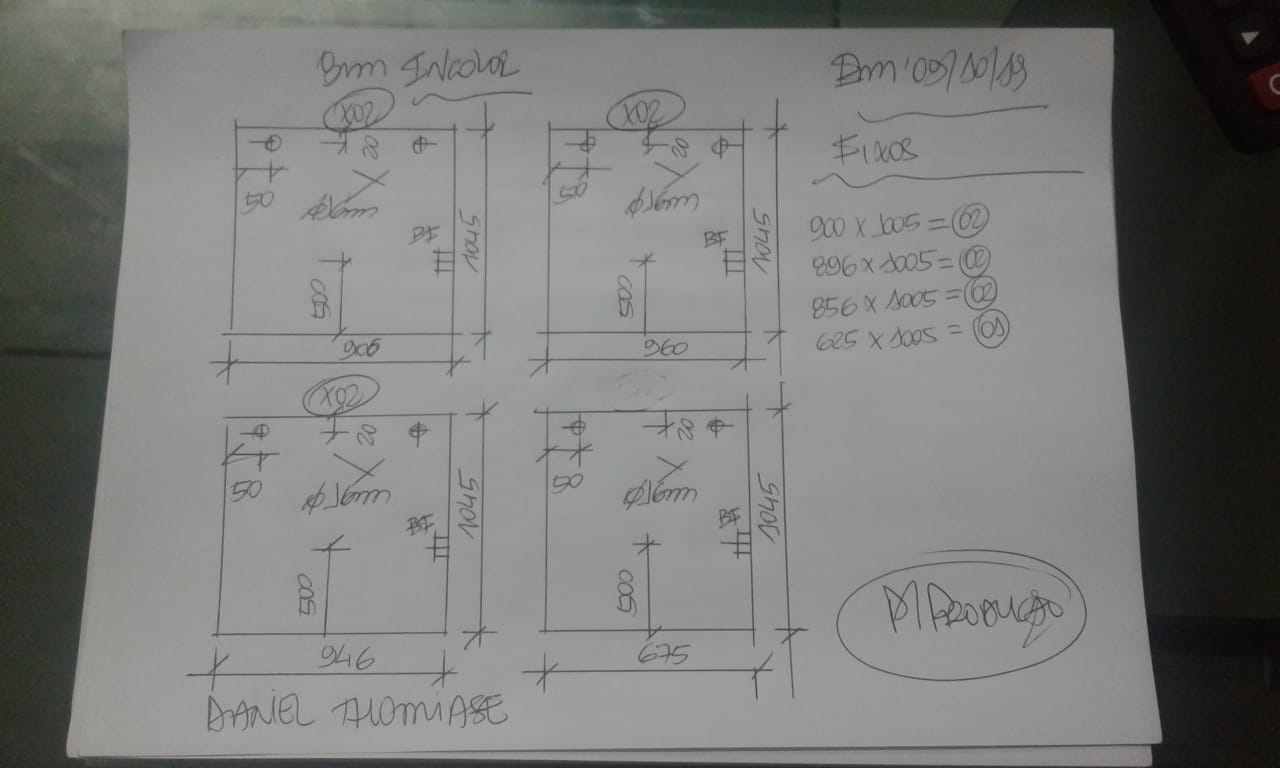 8mm INCOLOR
Dm: 09/10/19
X02
20
50
Ø16mm
BF
1045
500
906
X02
20
50
Ø16mm
BF
1045
500
960
FIXOS
900 X 1005 = 02
896 X 1005 = 02
856 X 1005 = 02
625 X 1005 = 01
X02
20
50
Ø16mm
BF
1045
500
946
20
50
Ø16mm
BF
1045
500
675
P/ PRODUÇÃO
DANIEL